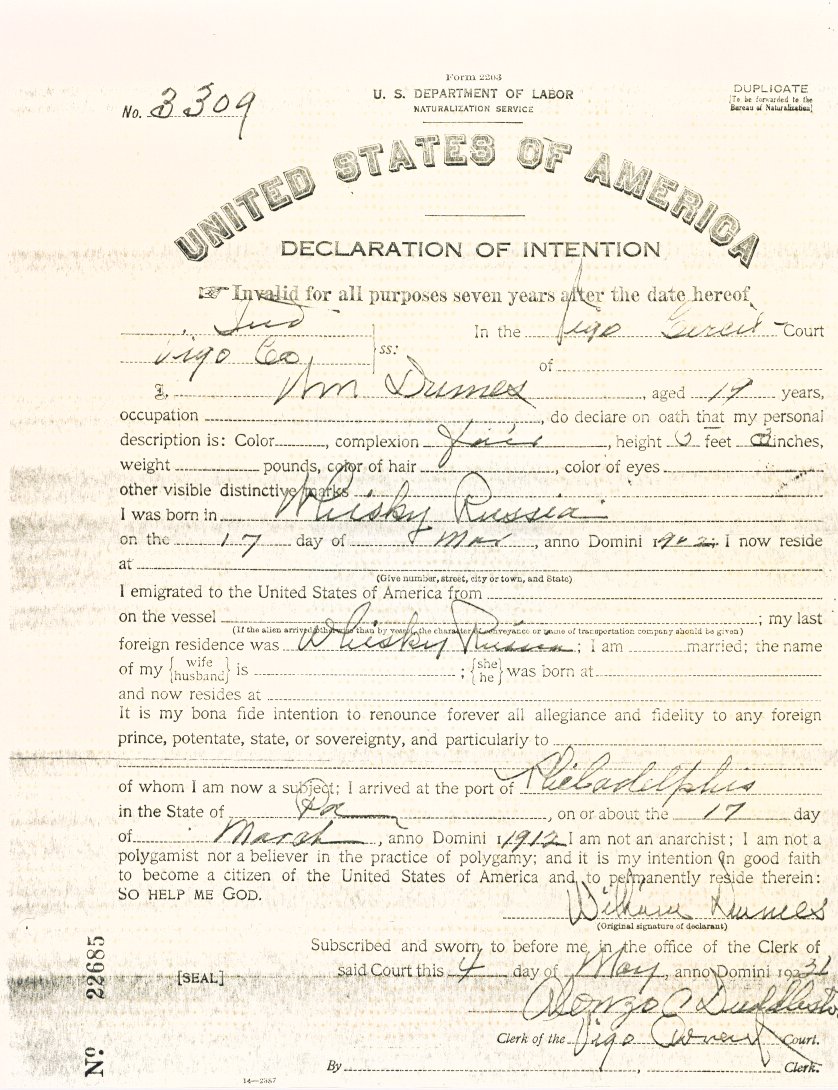 Form 2203
No. 3309
U. S. DEPARTMENT OF LABOR
NATURALIZATION SERVICE
DUPLICATE
[To be forwarded to the
Bureau of Naturalization]
UNITED STATES OF AMERICA
DECLARATION OF INTENTION
☞ Invalid for all purposes seven years after the date hereof
Ind
In the Vigo Circuit Court
Vigo Co ss:
of
I, Wm Dumes, aged years,
occupation , do declare on oath that my personal
description is: Color , complexion fair , height feet inches,
weight pounds, color of hair , color of eyes
other visible distinctive marks
I was born in Russia
on the 17 day of Mar , anno Domini 1902; I now reside
at
(Give number, street, city or town, and State)
I emigrated to the United States of America from
on the vessel ; my last
(If the alien arrived otherwise than by vessel, the character of conveyance or name of transportation company should be given)
foreign residence was Russia; I am married; the name
of my {wife husband} is ; {she he} was born at
and now resides at
It is my bona fide intention to renounce forever all allegiance and fidelity to any foreign
prince, potentate, state, or sovereignty, and particularly to
of whom I am now a subject; I arrived at the port of Philadelphia
in the State of Pa , on or about the 17 day
of March , anno Domini 1912 I am not an anarchist; I am not a
polygamist nor a believer in the practice of polygamy; and it is my intention in good faith
to become a citizen of the United States of America and to permanently reside therein:
SO HELP ME GOD.
William Dumes
(Original signature of declarant)
Subscribed and sworn to before me in the office of the Clerk of
[SEAL]
said Court this 4 day of May, anno Domini 19
Alonzo C Duddleston
Clerk of the Vigo Circuit Court.
By , Clerk.
No 22685
14—2387